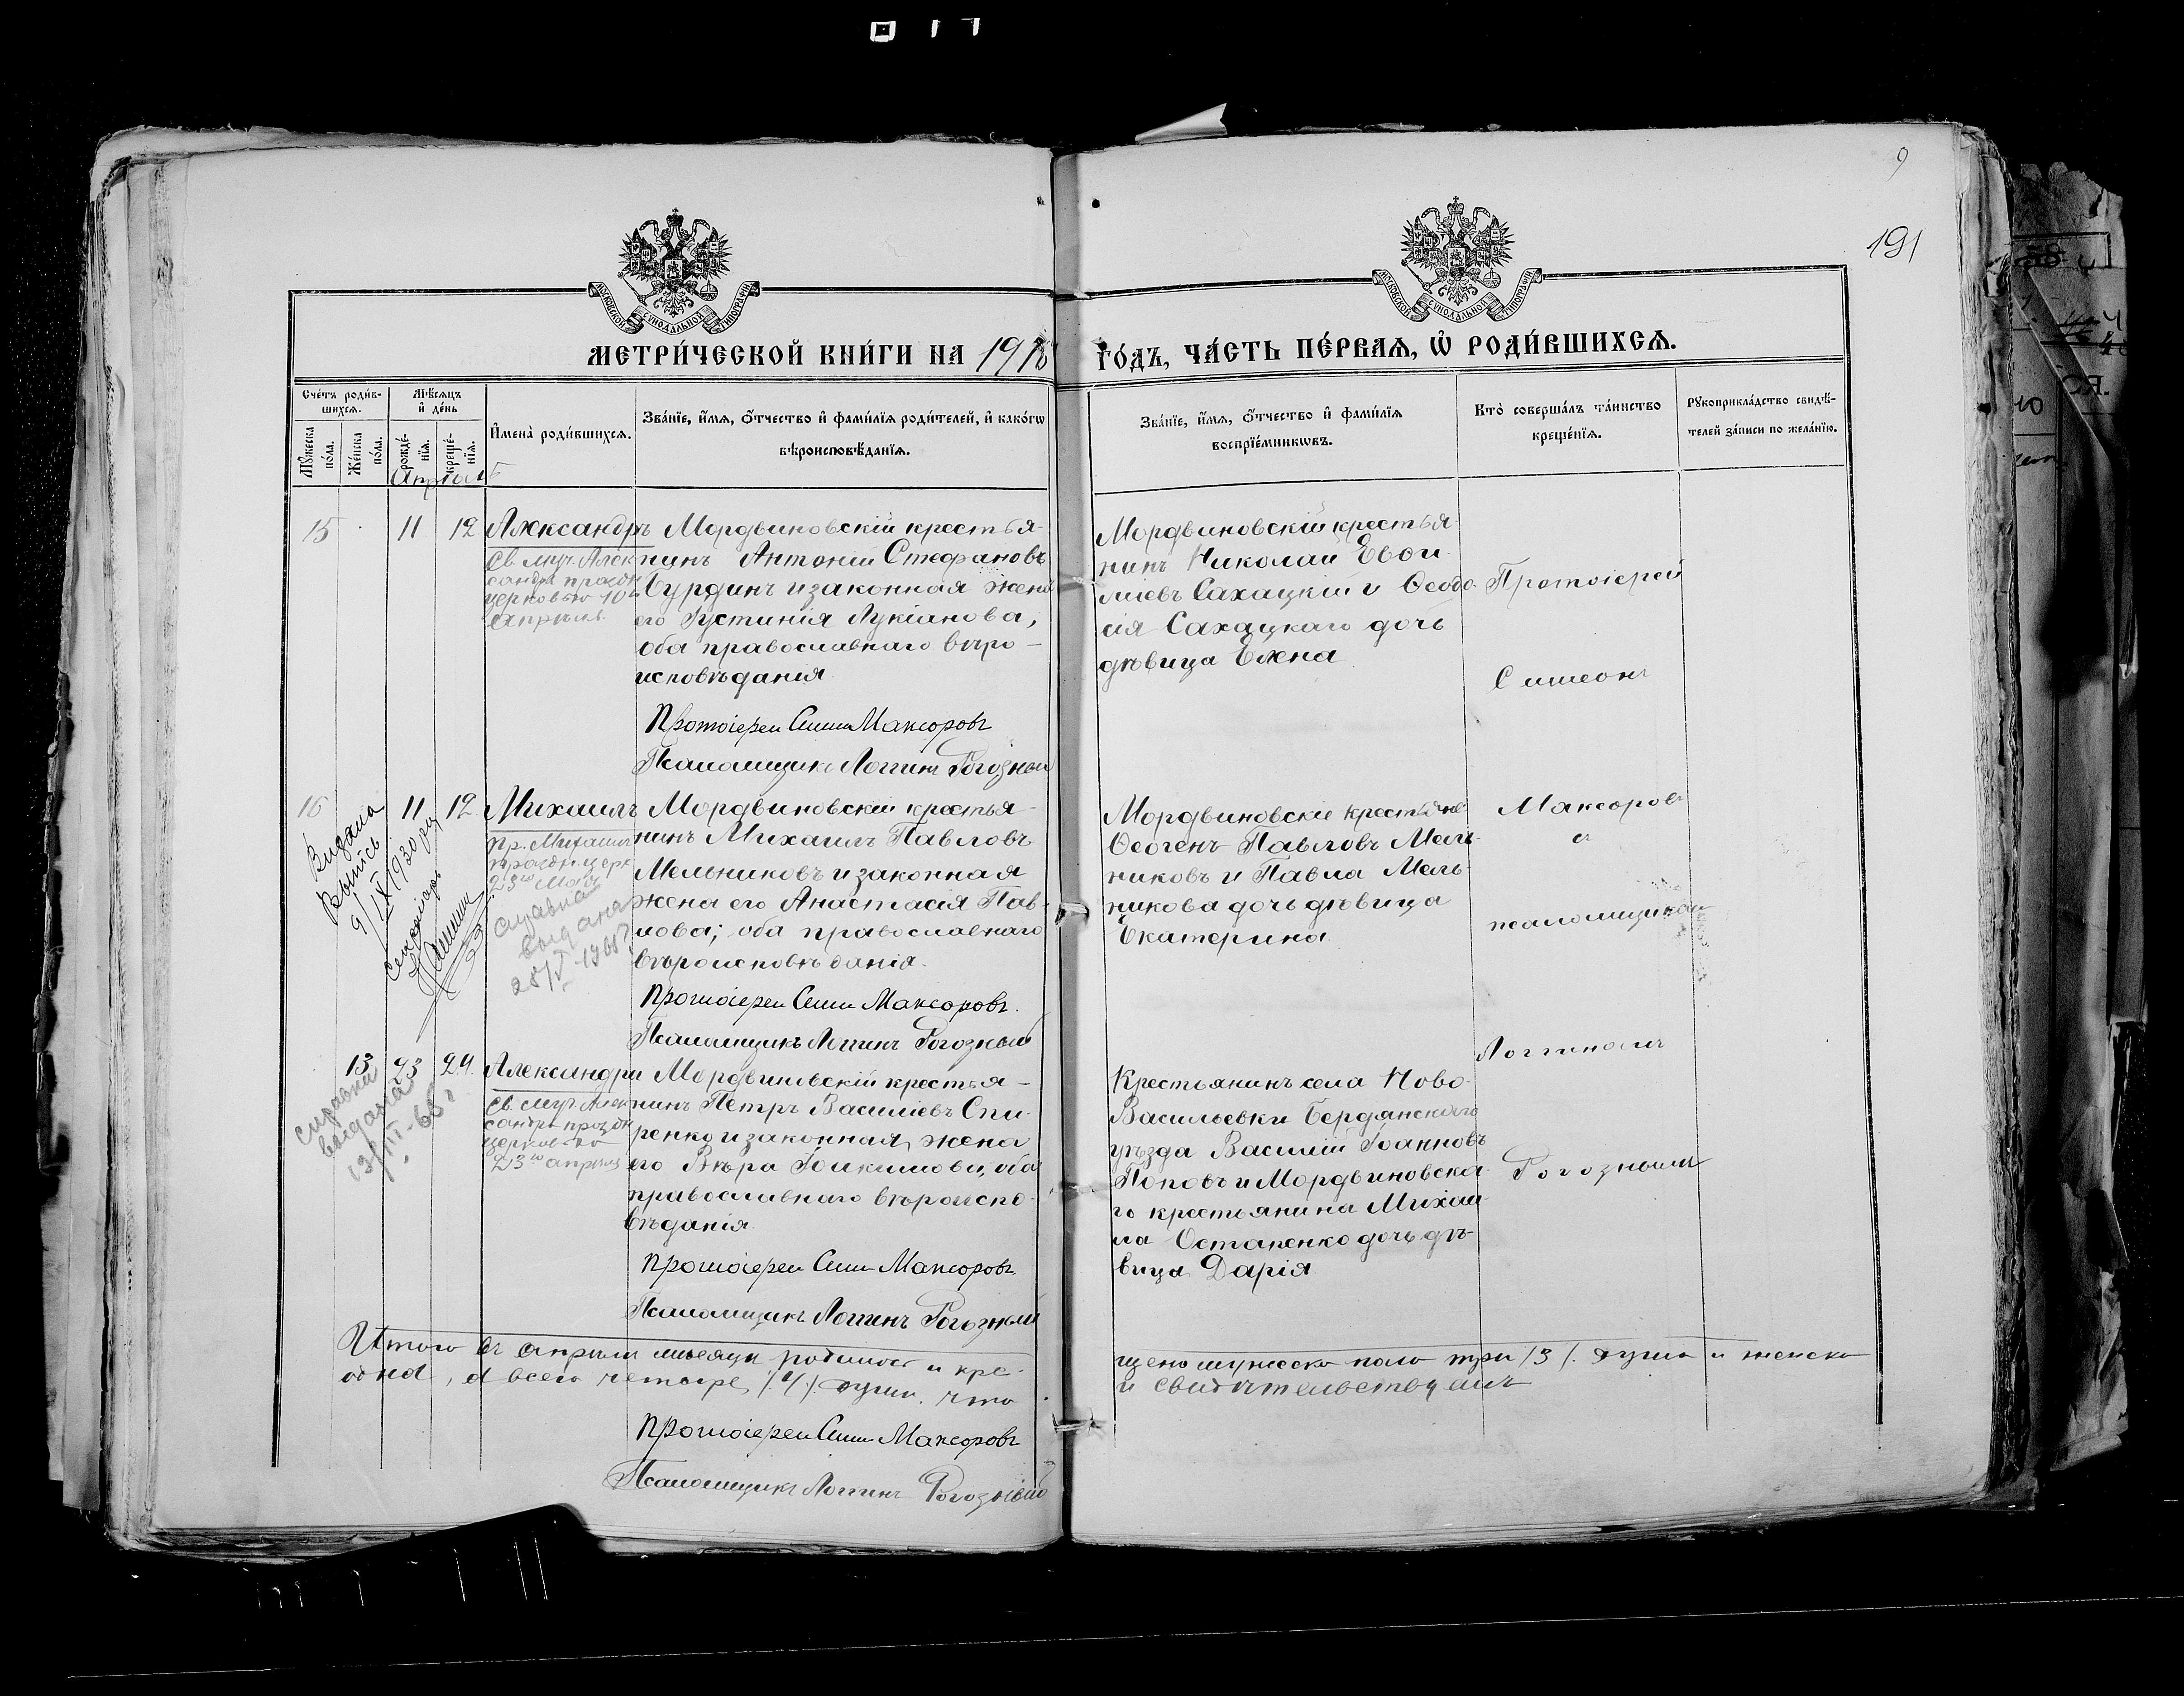 9
191
МОСКОВСКОЙ СѴНОДАЛЬНОЙ ТИПОГРАФІИ
МОСКОВСКОЙ СѴНОДАЛЬНОЙ ТИПОГРАФІИ
МЕТРИ́ЧЕСКОЙ КНИ́ГИ НА 1910
ГО́ДЪ, ЧА́СТЬ ПЕ́РВАѦ, Ѡ҆ РОДИ́ВШИХСѦ.
Сче́тъ роди́в-
шихсѧ.
Мꙋ́жеска по́ла.
Же́нска по́ла.
Мѣ́сѧцъ и҆ де́нь
рожде́-
нїѧ.
креще́-
нїѧ.
И҆мена̀ роди́вшихсѧ.
Зва́нїе, и҆́мѧ, ѻ҆́тчество и҆ фами́лїѧ роди́телей, и҆ како́гѡ
вѣроисповѣ́данїѧ.
Зва́нїе, и҆́мѧ, ѻ҆́тчество и҆ фами́лїѧ
воспрїе́мникѡвъ.
Кто̀ соверша́лъ та́инство
креще́нїѧ.
Рꙋкоприкла́дство свидѣ́-
телей за́писи по жела́нїю.
Апрѣль
15 11 12 Александръ
Св. муч. Алек
сандра праздн
церковью 10го
Апрѣля.
Мордвиновскій крестья-
нинъ Антоній Стефановъ
Бурдинъ и законная жена
его Іустинія Лукіанова,
оба православнаго вѣро-
исповѣданія.
Протоіерей Симеонъ Максоровъ
Псаломщикъ Логгинъ Рогозный
Мордвиновскій крестья-
нинъ Николай Евѳи-
міевъ Сахацкій и Ѳеодо-
сія Сахацкаго дочь
дѣвица Елена
Протоіерей
Симеонъ
16 11 12 Михаилъ
Пр. Михаилъ
праздн. церк
23го Мая
Видана
Выпись
9/IX 1930 року
Секретарь
справка
выдана
28/V-1968?
Мордвиновскій крестья-
нинъ Михаилъ Павловъ
Мельниковъ и законная
жена его Анастасія Пав-
лова; оба православнаго
вѣроисповѣданія.
Протоіерей Симеонъ Максоровъ.
Псаломщикъ Логгинъ Рогозный
Мордвиновскіе крестьяне
Ѳеогенъ Павловъ Мель-
никовъ и Павла Мель-
никова дочь дѣвица
Екатерина.
Максоровъ
съ
псаломщикомъ
Логгиномъ
13 23 24 Александра
Св. муч. Алек
сандра праздн
церковью
23го апрѣля
справка
выдана
13/VI-68г
Мордвиновскій крестья-
нинъ Петръ Василіевъ Спи-
ренко и законная жена
его Вѣра Іоакимова, оба
православнаго вѣроиспо-
вѣданія.
Протоіерей Симеонъ Максоровъ.
Псаломщикъ Логгинъ Рогозный
Крестьянинъ села Ново-
Васильевки Бердянскаго
уѣзда Василій Іоанновъ
Поповъ и Мордвиновска-
го крестьянина Михаи-
ла Остапенко дочь дѣ-
вица Дарія.
Рогознымъ
Итого въ апрѣлѣ мѣсяцѣ родилось и кре-
щено мужеска пола три /3/. душъ и женска
одна, а всего четыре /4/ души. что
и свидѣтельствуемъ
Протоіерей Симеонъ Максоровъ
Псаломщикъ Логгинъ Рогозный